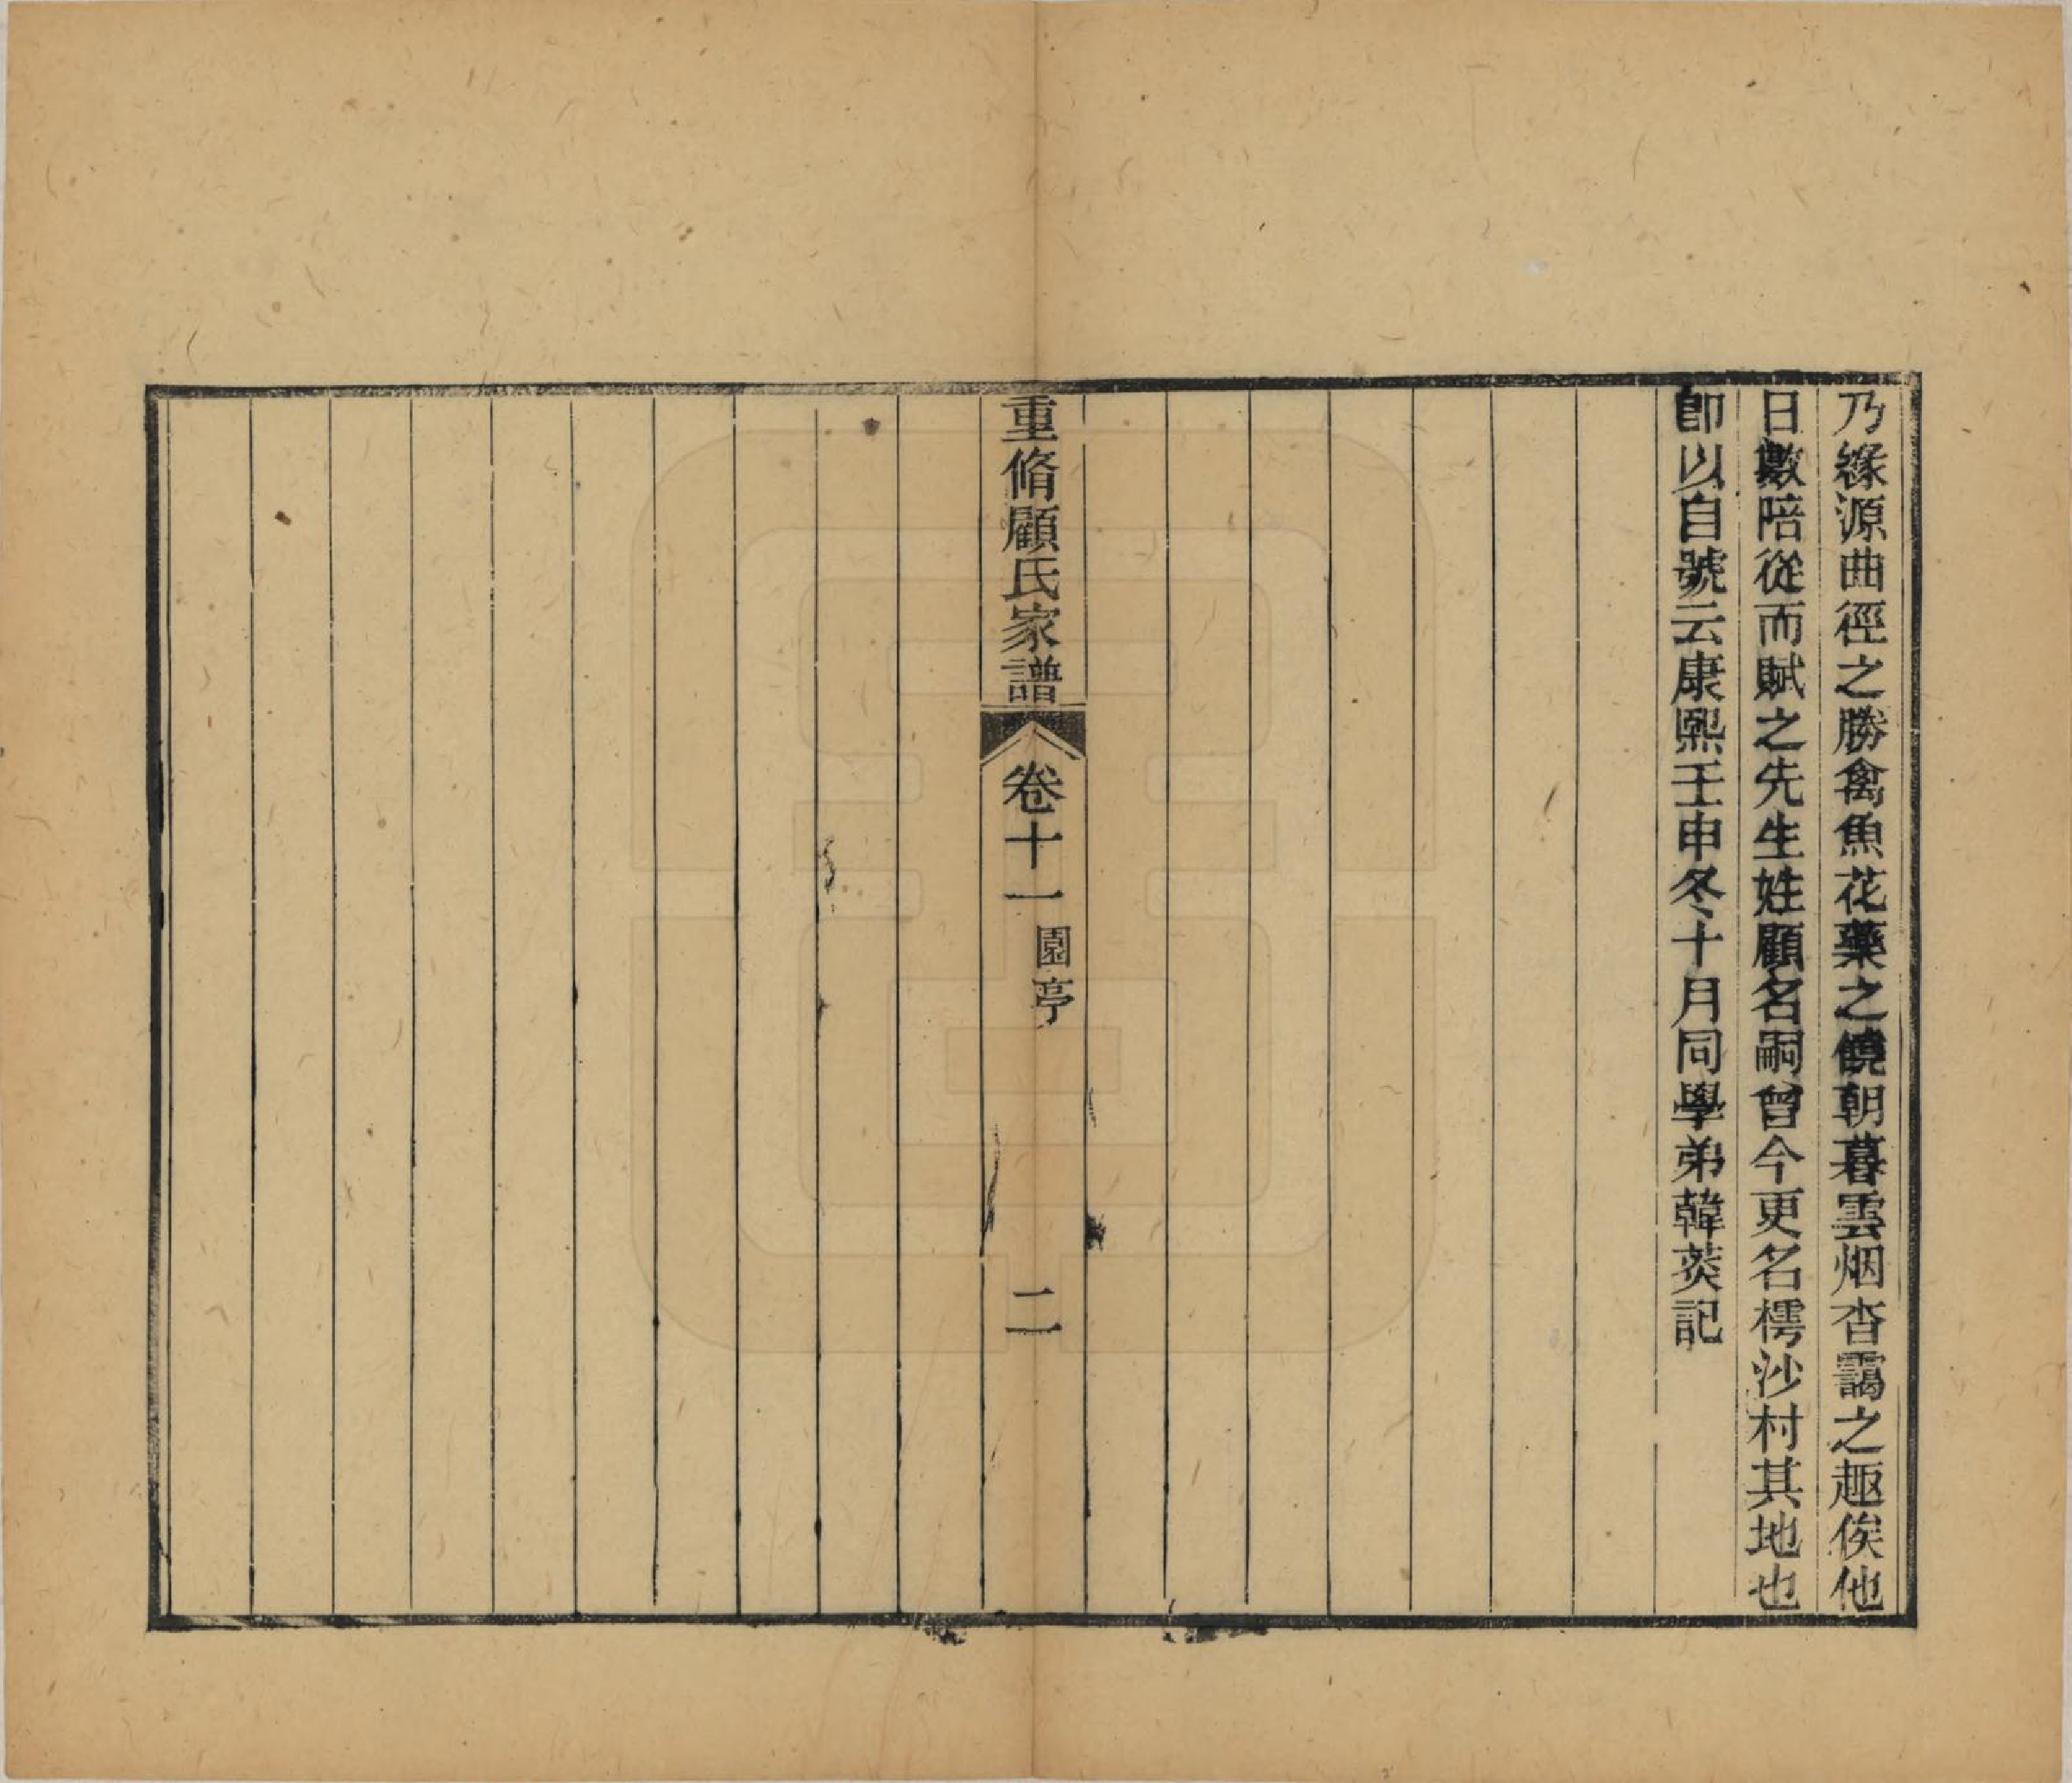 乃緣源曲徑之勝禽魚花藥之饒朝暮雲烟杳靄之趣俟他
日數陪從而賦之先生姓顧名嗣曾今更名樗沙村其地也
卽以自號云康熙壬申冬十月同學弟韓菼記
重脩顧氏家譜 卷十一 園亭 二